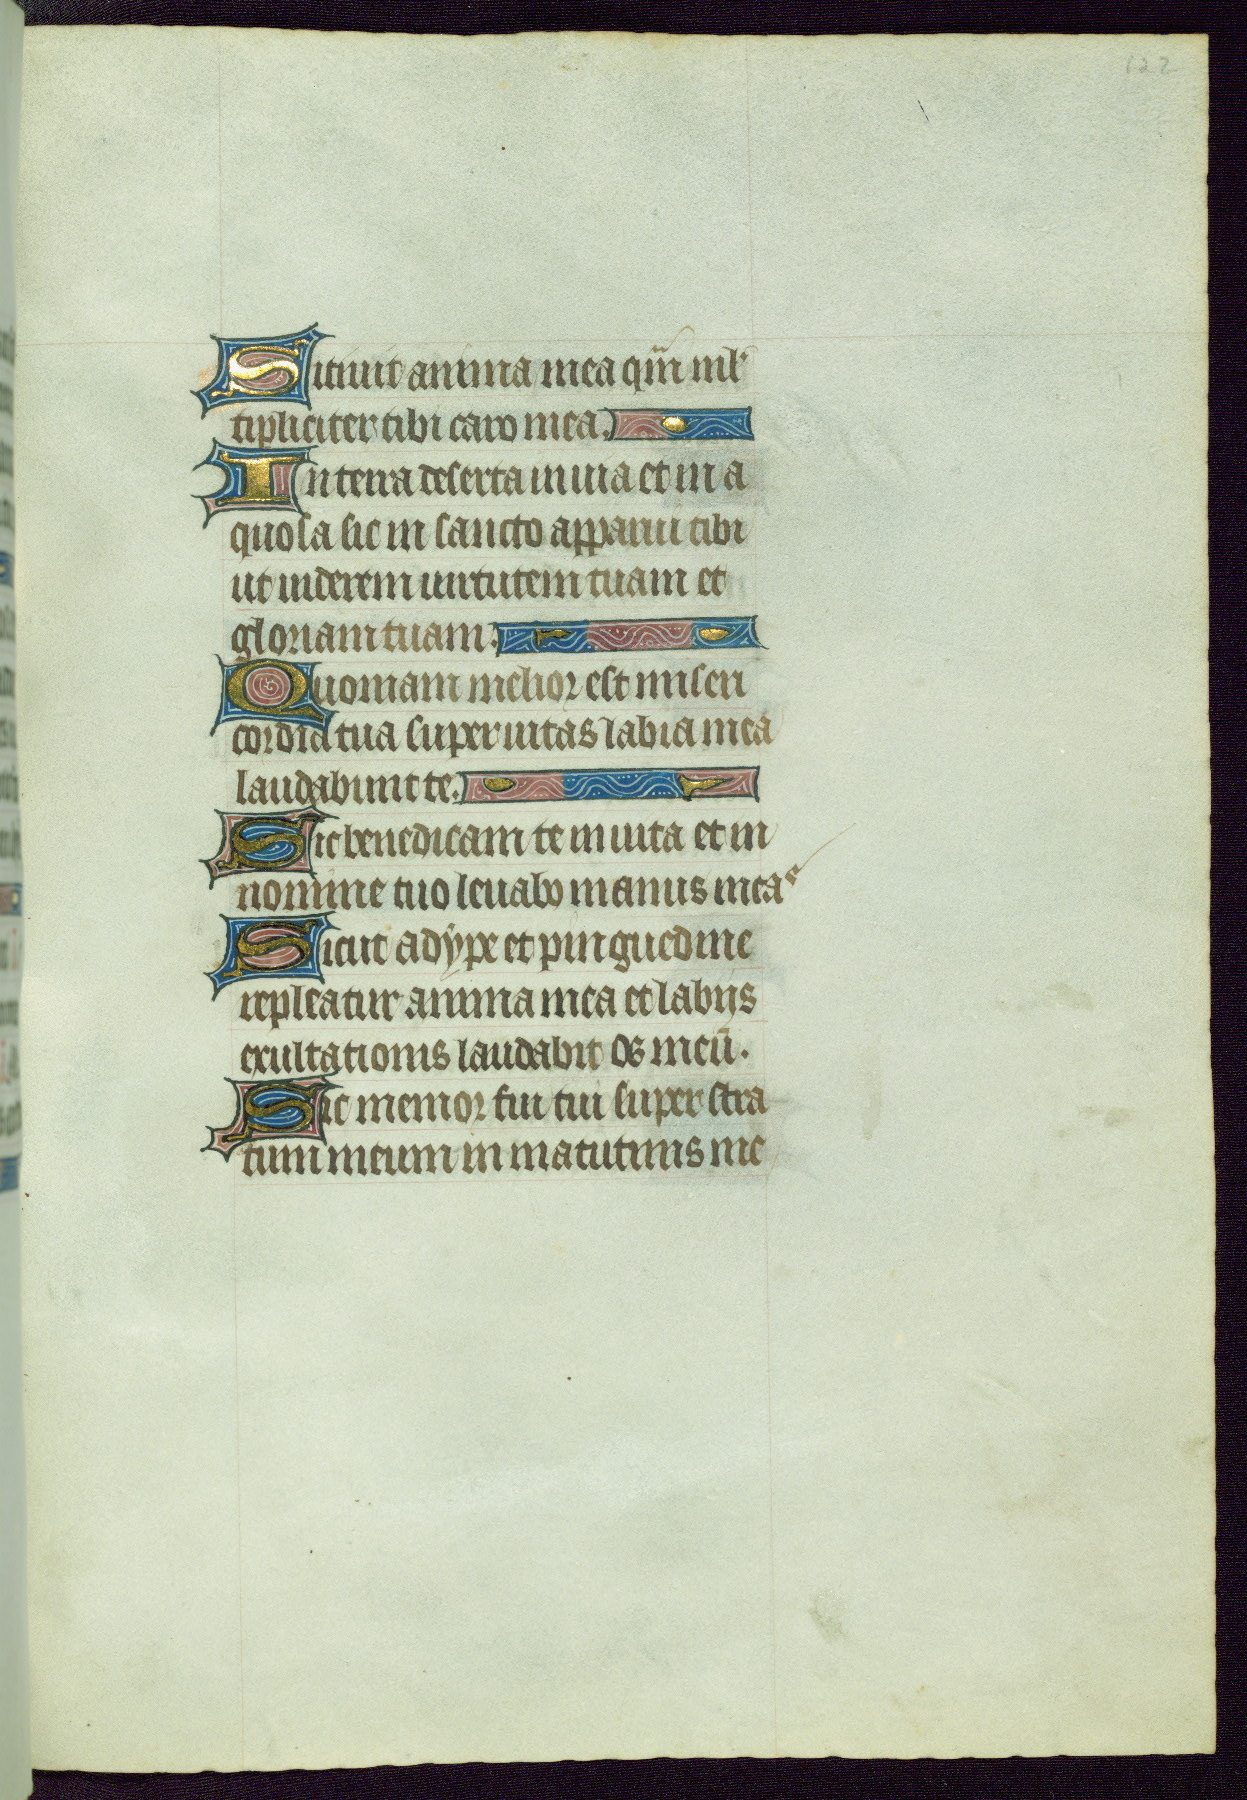 122
Sitiuit anima mea qm̅ ml̓
tipliciter tibi caro mea.
In terra deserta inuia et in a
quosa sic in sancto apparui tibi
ut uiderem uirtutem tuam et
gloriam tuam.
Quoniam melior est miseri
cordia tua super uitas labia mea
laudabunt te.
Sic benedicam te in uita et in
nomine tuo leuabo manus meas
Sicut adẏpe et pinguedine
repleatur anima mea et labijs
exultationis laudabit os meū.
Sic memor fui tui super stra
tum meum in matutinis me